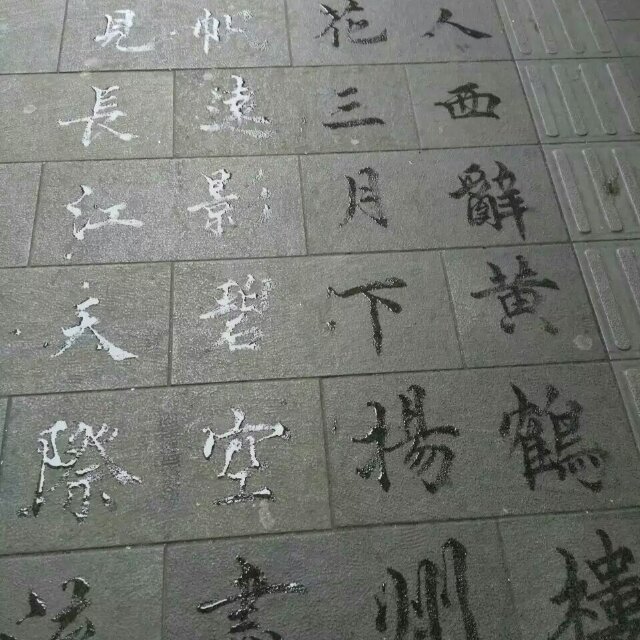 人西辭黃鶴樓
花三月下揚州
帆遠影碧空盡
見長江天際流